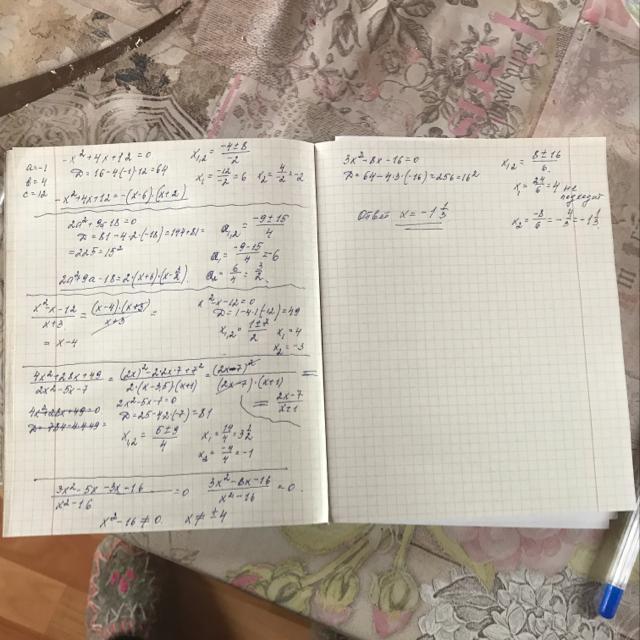 a=-1
b=4
c=12
-x²+4x+12=0
D=16-4·(-1)·12=64
x₁,₂=(-4±8)/-2
x₁=-12/-2=6 x₂=4/-2=-2
-x²+4x+12=-(x-6)·(x+2)
2a²+9a-18=0
D=81-4·2·(-18)=144+81=
=225=15²
a₁,₂=(-9±15)/4
a₁=(-9-15)/4=6
a₂=6/4=3/2
2a²+9a-18=2·(x+6)·(x-3/2)
(x²-x-12)/(x+3)=((x-4)·(x+3))/(x+3)=
=x-4
x²-x-12=0
D=1-4·1·(-12)=49
x₁,₂=(1±7)/2 x₁=4
x₂=-3
(4x²-28x+49)/(2x²-5x-7)=((2x)²-2·2x·7+7²)/(2·(x-3,5)(x+1))=(2x-7)²/((2x-7)·(x+1))=
=(2x-7)/(x+1)
4x²-28x+49=0
D=784-4·4·49
2x²-5x-7=0
D=25-4·2·(-7)=81
x₁,₂=(5±9)/4 x₁=14/4=3 1/2
x₂=-4/4=-1
(3x²-5x-3x-16)/(x²-16)=0 (3x²-8x-16)/(x²-16)=0
x²-16≠0 x≠±4
3x²-8x-16=0
D=64-4·3·(-16)=256=16²
x₁,₂=(8±16)/6
x₁=24/6=4 не подходит
x₂=-8/6=-4/3=-1 1/3
Ответ x=-1 1/3